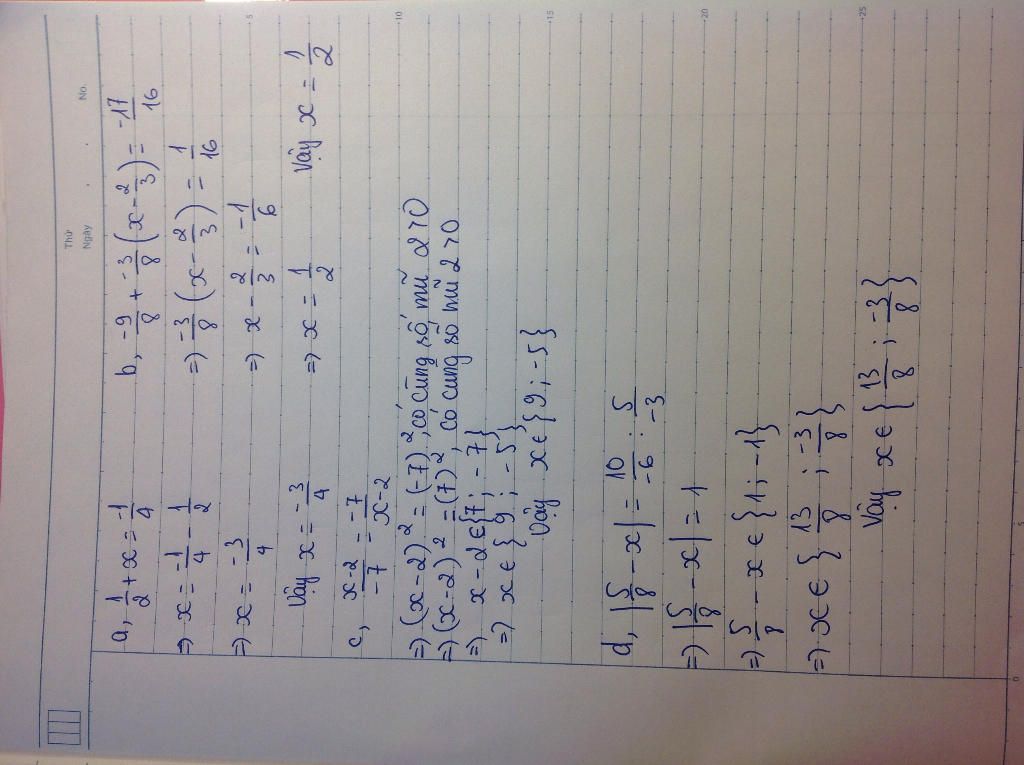 Thứ
Ngày
No.
a, 1/2 + x = -1/4
=> x = -1/4 - 1/2
=> x = -3/4
Vậy x = -3/4
b, -9/8 + -3/8 (x - 2/3) = -17/16
=> -3/8 (x - 2/3) = 1/16
=> x - 2/3 = -1/6
=> x = 1/2 Vậy x = 1/2
c, x-2/-7 = -7/x-2
=> (x-2)² = (-7)², có cùng số mũ 2>0
=> (x-2)² = (7)², có cùng số mũ 2>0
=> x-2 ∈ {7; -7}
=> x ∈ {9; -5}
Vậy x ∈ {9; -5}
d, |5/8 - x| = 10/-6 : 5/-3
=> |5/8 - x| = 1
=> 5/8 - x ∈ {1; -1}
=> x ∈ {13/8 ; -3/8}
Vậy x ∈ {13/8 ; -3/8}
5
10
15
20
25
0
5